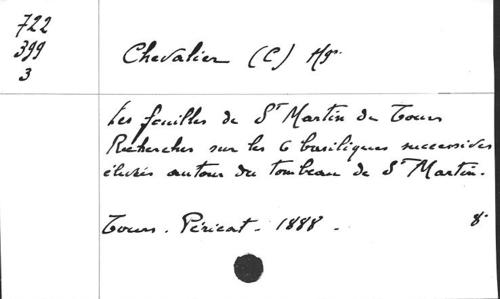 722
399
3
Chevalier (C) Mgr.
Les fouilles de St Martin de Tours
Recherches sur les 6 basiliques successives
élevées autour du tombeau de St Martin.
Tours. Péricat. 1888. 8°